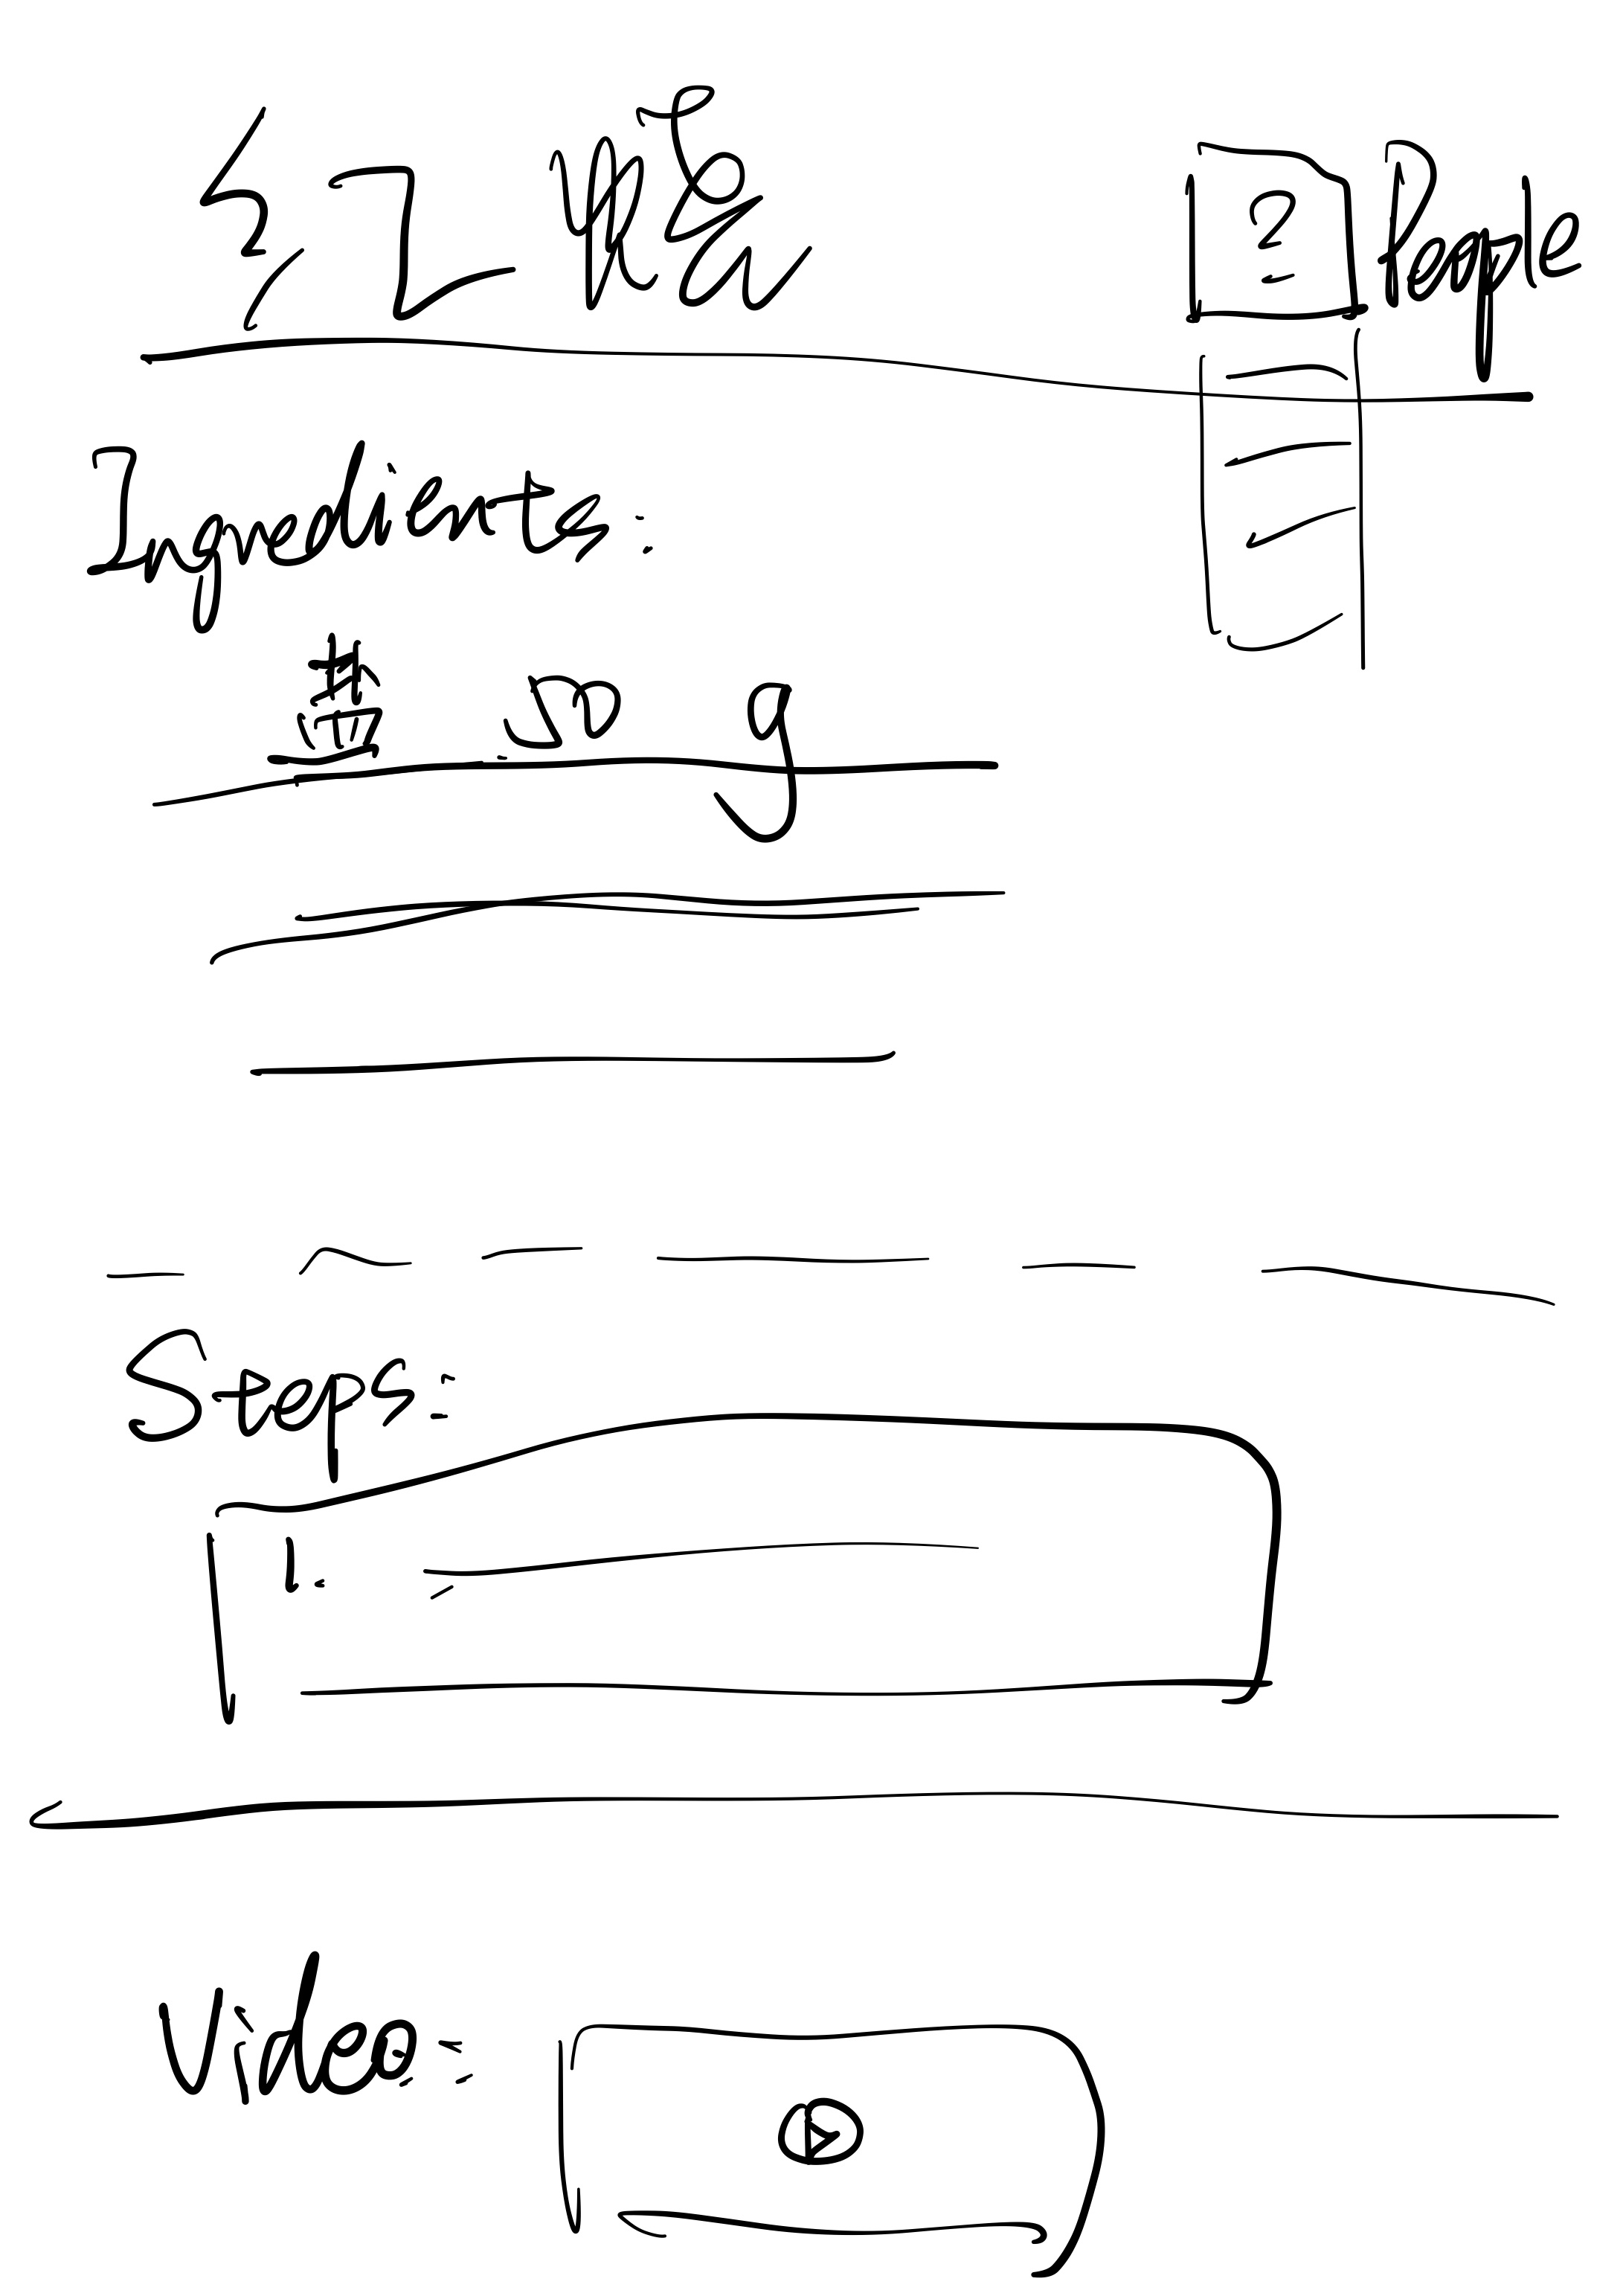 ? People
Ingredients:
盐 50 g
Steps:
1.
Video: